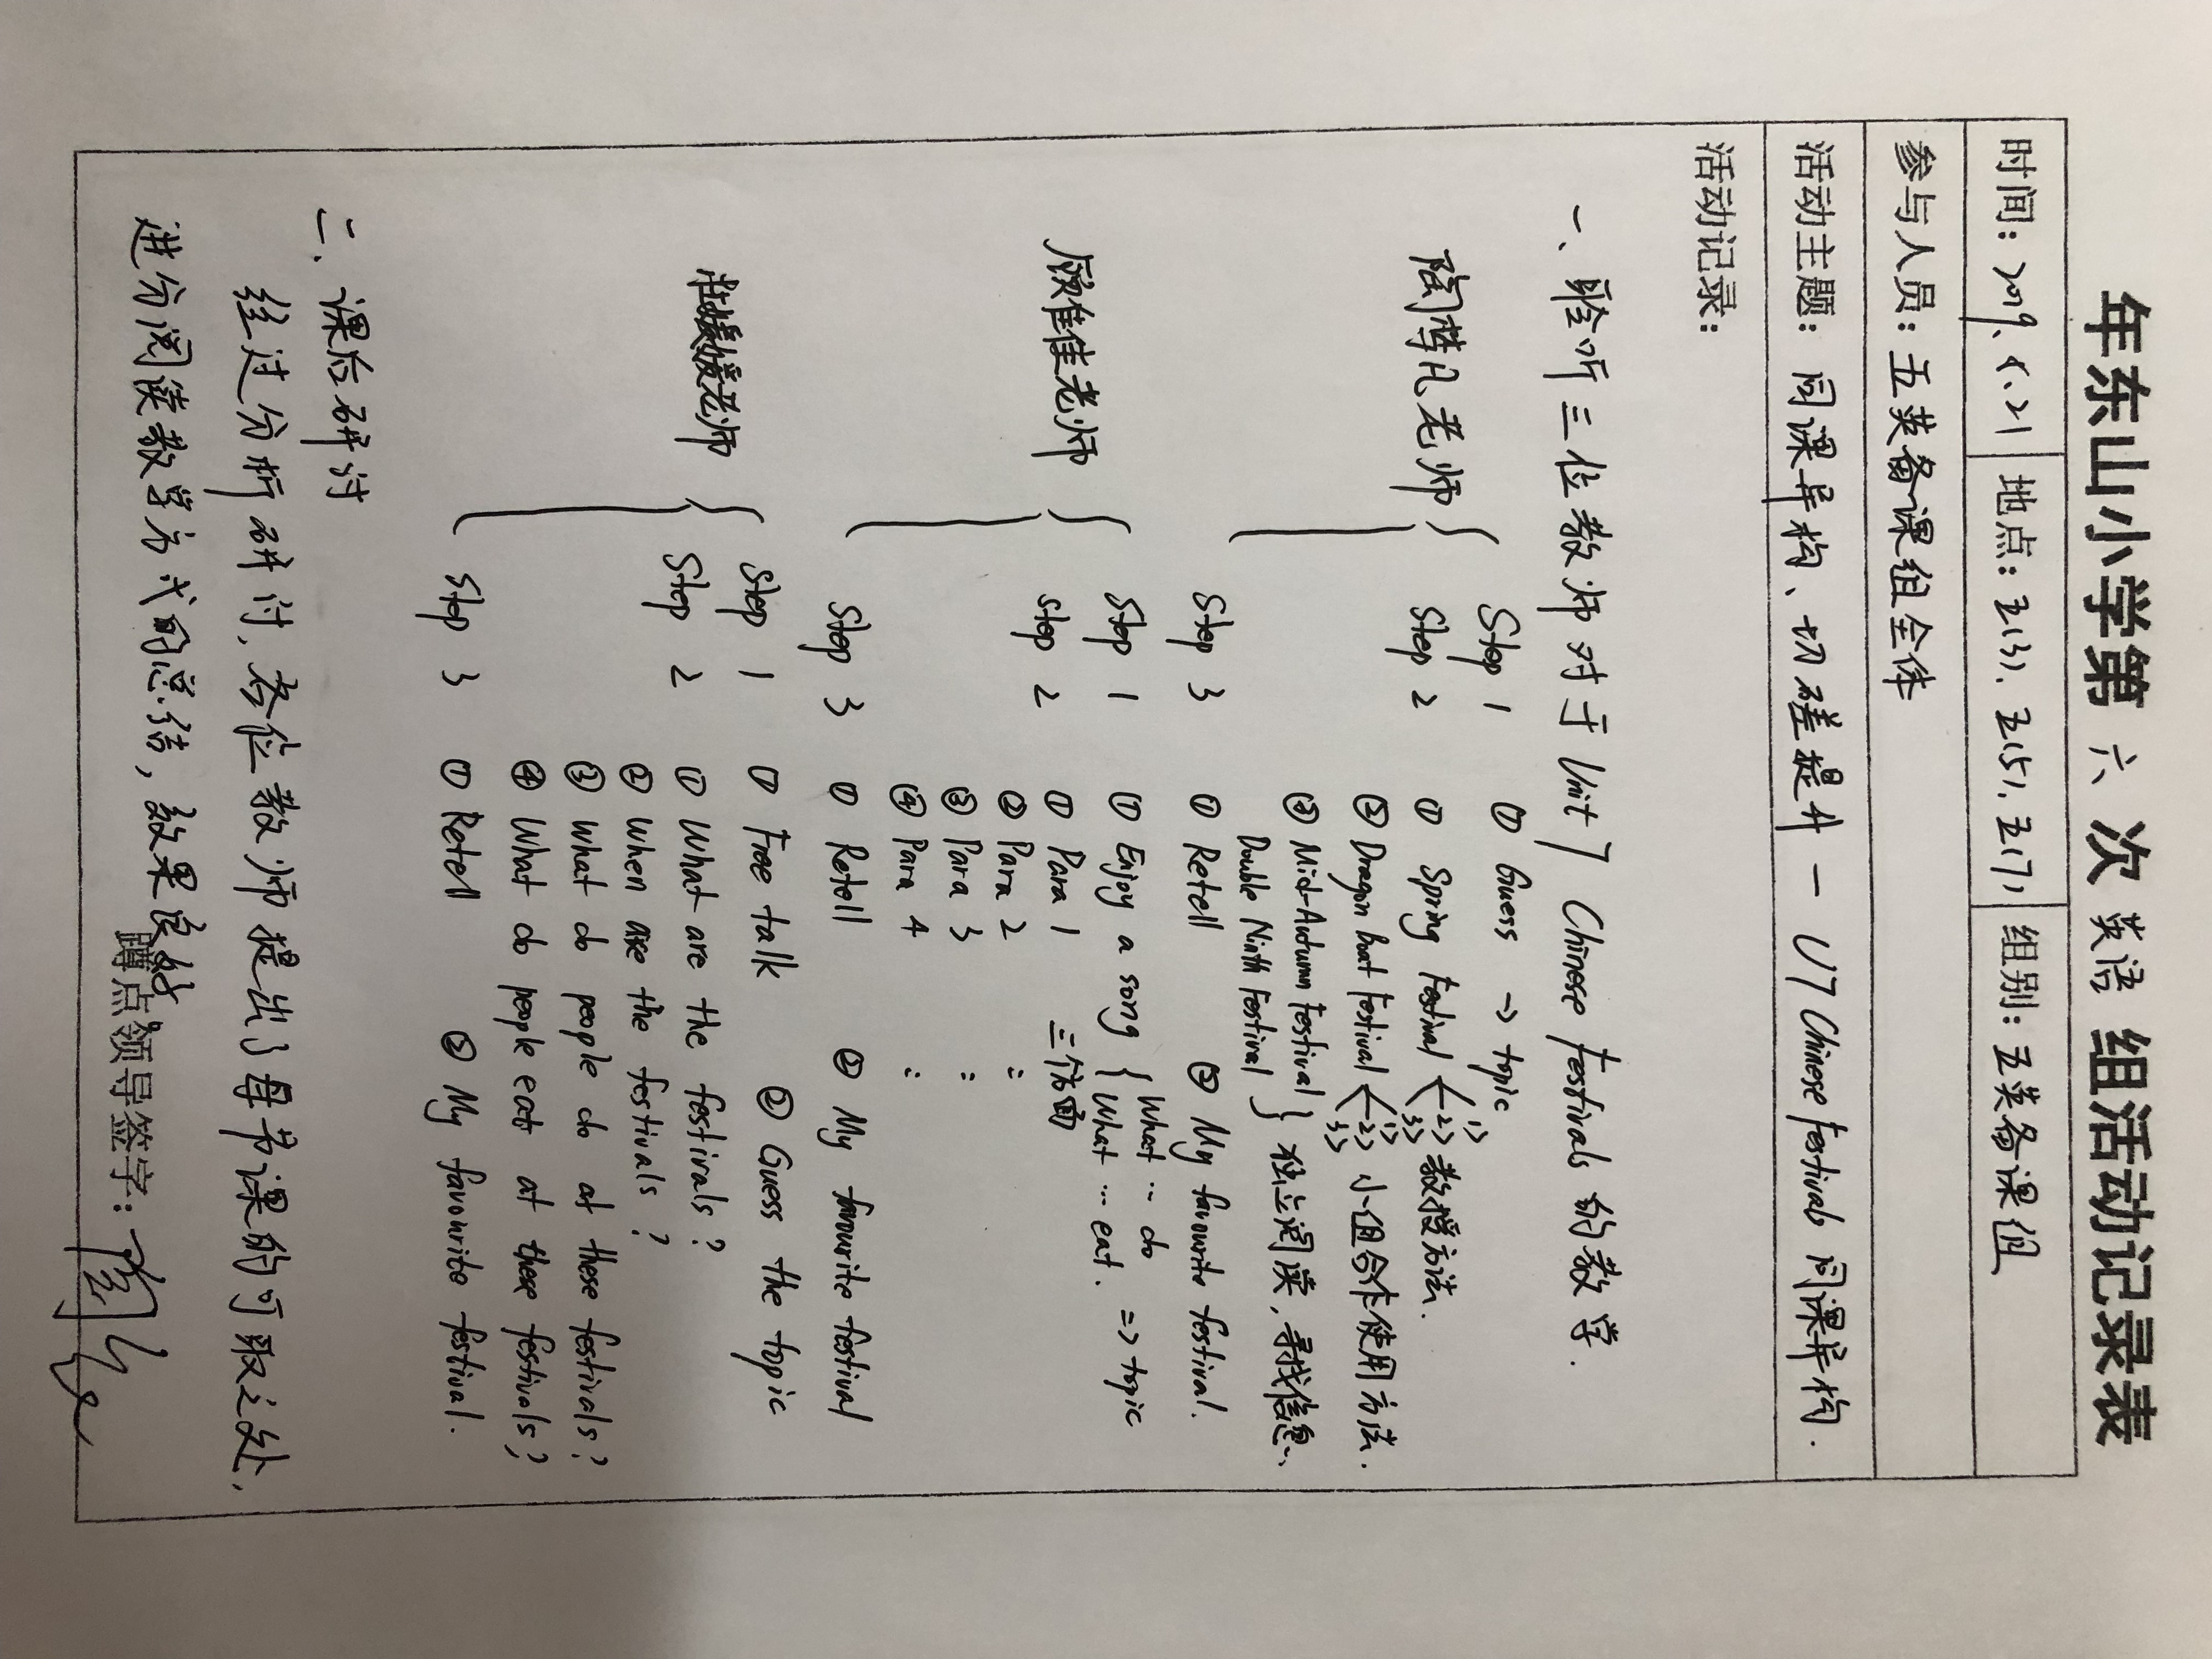 年东山小学第 六 次 英语 组活动记录表
时间：2019.5.21 地点：五(3)、五(5)、五(7) 组别：五英备课组
参与人员：五英备课组全体
活动主题：同课异构、切磋提升 — U7 Chinese festivals 同课异构.
活动记录：
一、聆听三位教师对于 Unit 7 Chinese festivals 的教学.
Step 1 ① Guess → topic
陆梦凡老师 Step 2 ① Spring festival 1> 2> 3> 教授方法.
② Dragon boat festival 1> 2> 3> 小组合作使用方法.
③ Mid-Autumn festival
Double Ninth Festival 独立阅读，寻找信息、
Step 3 ① Retell ② My favourite festival.
Step 1 ① Enjoy a song What … do What … eat. => topic
顾佳佳老师 Step 2 ① Para 1 三个方面
② Para 2 :
③ Para 3 :
④ Para 4 :
Step 3 ① Retell ② My favourite festival
Step 1 ① Free talk ② Guess the topic
媛媛老师 Step 2 ① What are the festivals?
② When are the festivals?
③ What do people do at these festivals?
④ What do people eat at these festivals?
Step 3 ① Retell ② My favourite festival.
二、课后研讨
经过分析研讨，各位教师提出了每节课的可取之处，
进分阅读教学方式的总结，效果良好.
蹲点领导签字：